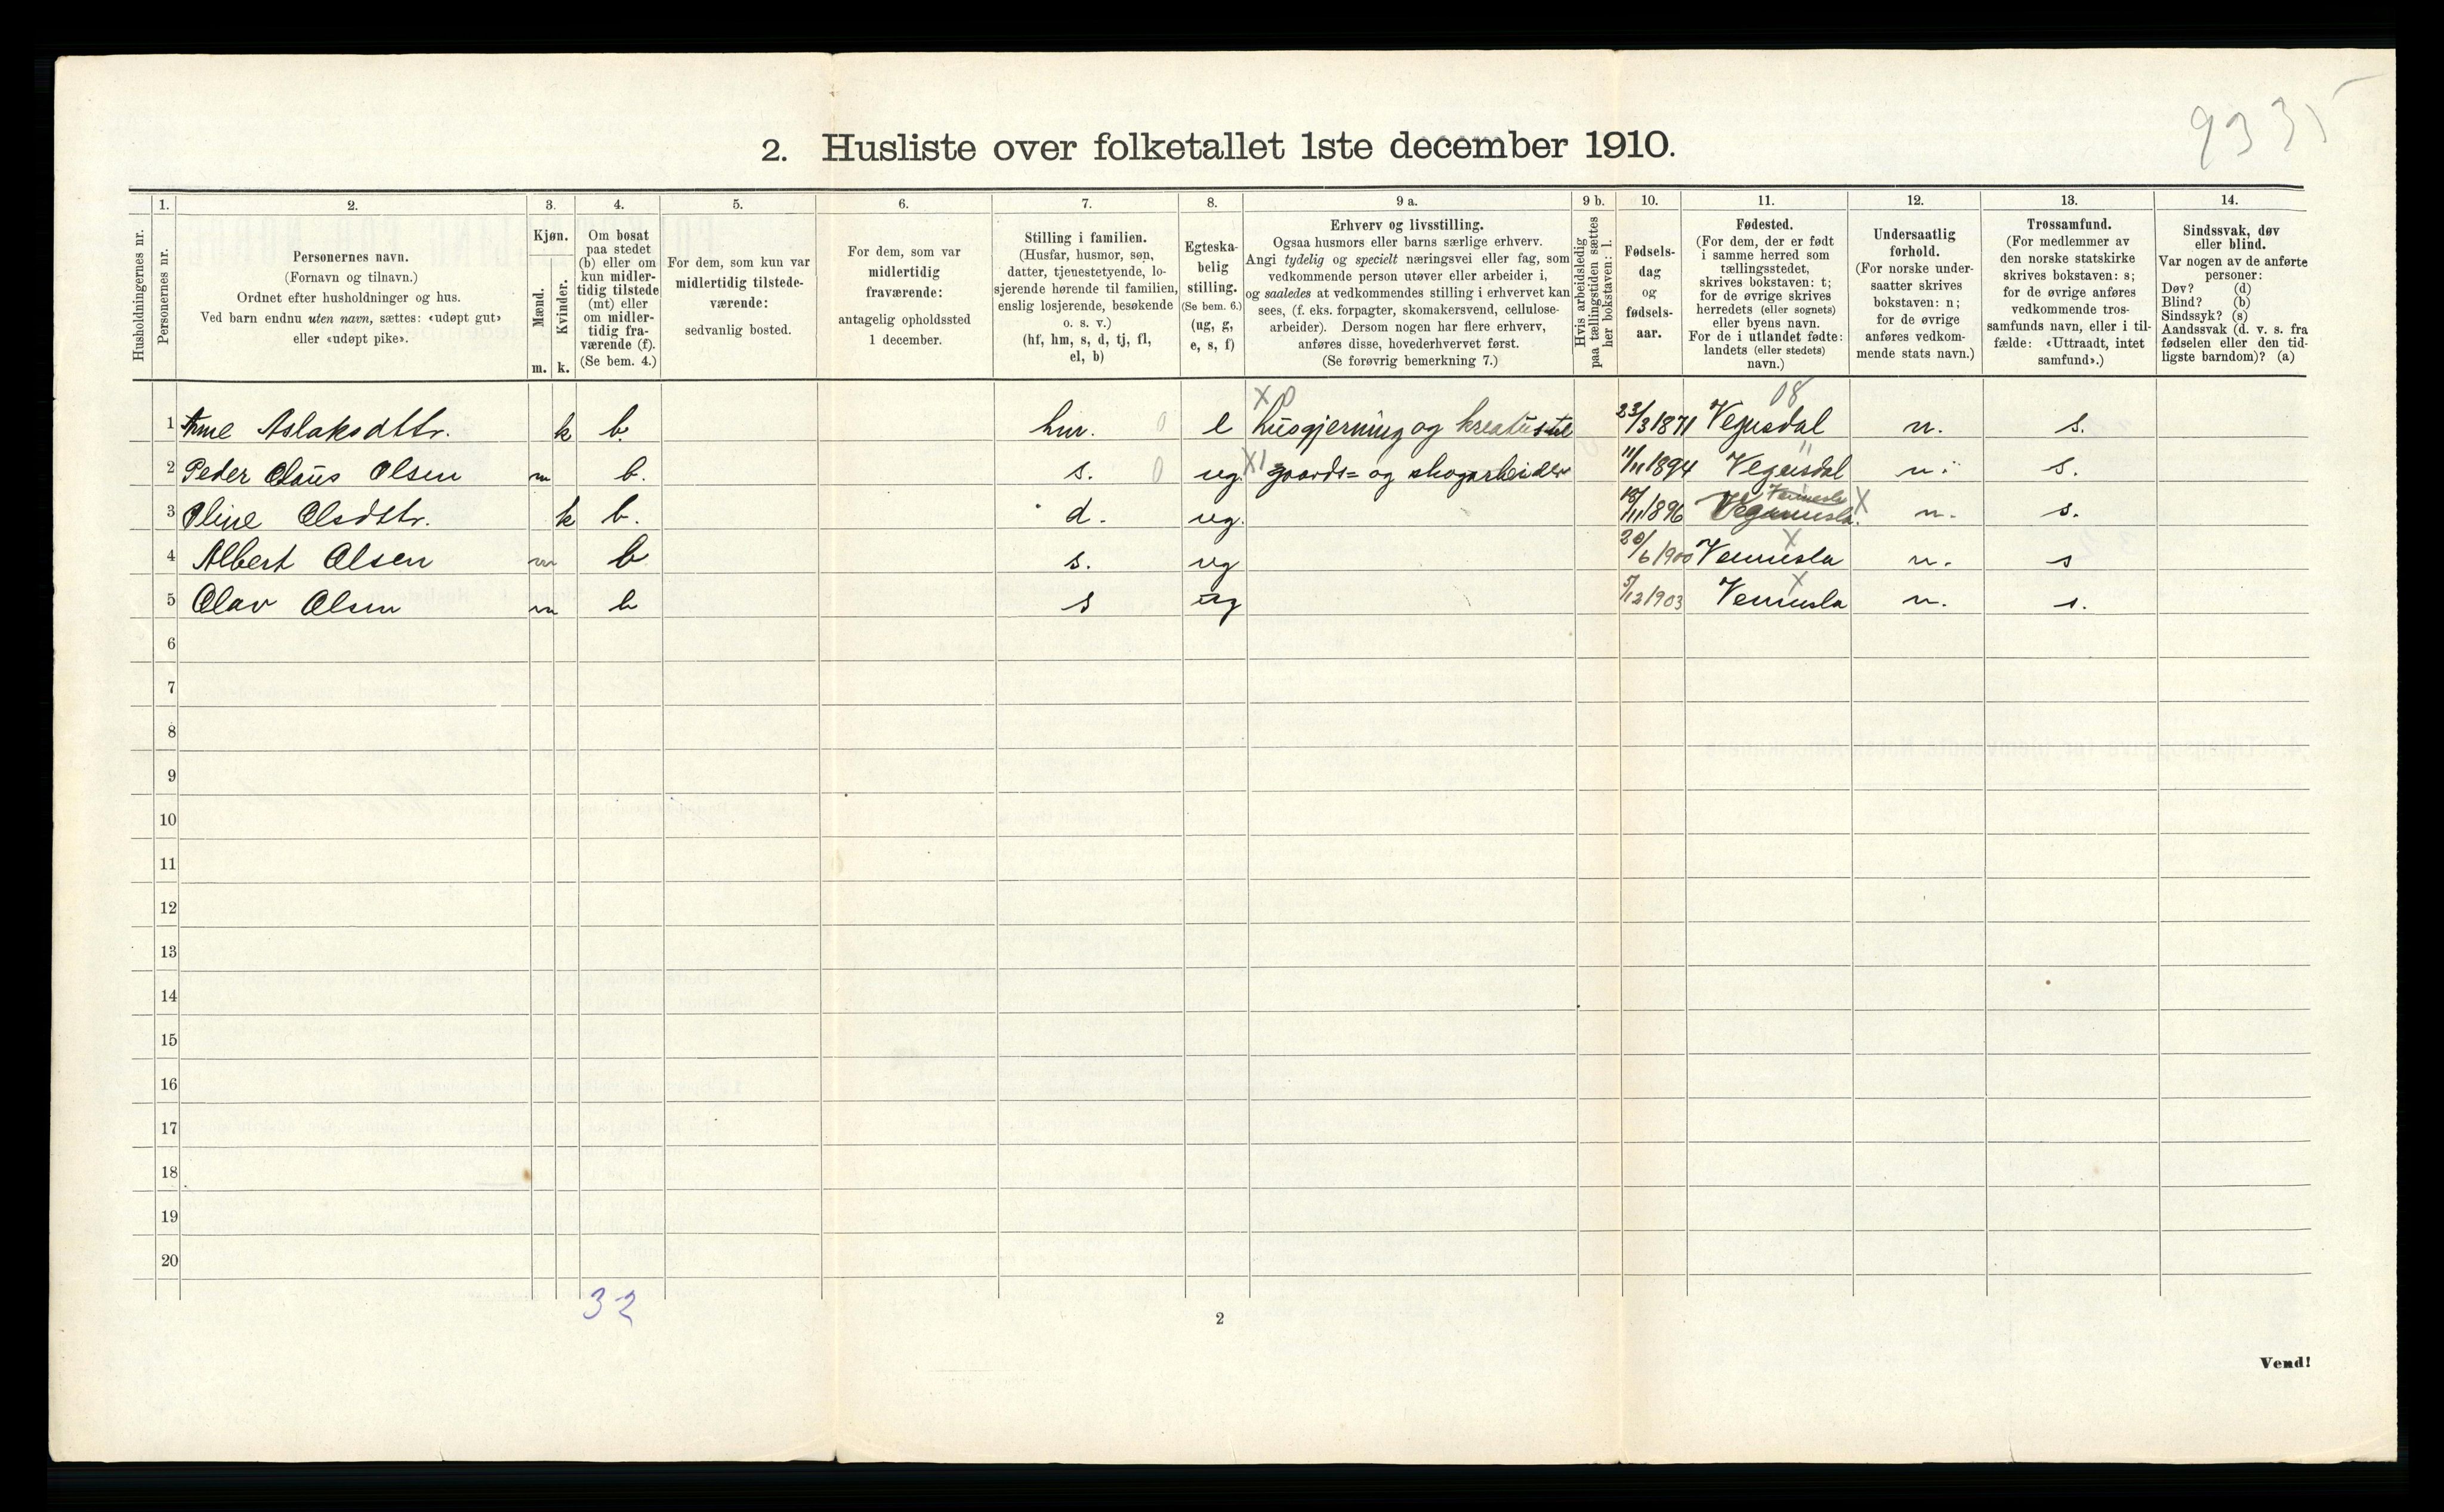 9335
2. Husliste over folketallet 1ste december 1910.
Husholdningernes nr.
1.
Personernes nr.
2.
Personernes navn.
(Fornavn og tilnavn.)
Ordnet efter husholdninger og hus.
Ved barn endnu uten navn, sættes: «udøpt gut»
eller «udøpt pike».
3.
Kjøn.
Mænd.
Kvinder.
m. k.
4.
Om bosat
paa stedet
(b) eller om
kun midler-
tidig tilstede
(mt) eller
om midler-
tidig fra-
værende (f).
(Se bem. 4.)
5.
For dem, som kun var
midlertidig tilstede-
værende:
sedvanlig bosted.
6.
For dem, som var
midlertidig
fraværende:
antagelig opholdssted
1 december.
7.
Stilling i familien.
(Husfar, husmor, søn,
datter, tjenestetyende, lo-
sjerende hørende til familien,
enslig losjerende, besøkende
o. s. v.)
(hf, hm, s, d, tj, fl,
el, b)
8.
Egteska-
belig
stilling.
(Se bem. 6.)
(ug, g,
e, s, f)
9 a.
Erhverv og livsstilling.
Ogsaa husmors eller barns særlige erhverv.
Angi tydelig og specielt næringsvei eller fag, som
vedkommende person utøver eller arbeider i,
og saaledes at vedkommendes stilling i erhvervet kan
sees, (f. eks. forpagter, skomakersvend, cellulose-
arbeider). Dersom nogen har flere erhverv,
anføres disse, hovederhvervet først.
(Se forøvrig bemerkning 7.)
9 b.
Hvis arbeidsledig
paa tællingstiden sættes
her bokstaven: l.
10.
Fødsels-
dag
og
fødsels-
aar.
11.
Fødested.
(For dem, der er født
i samme herred som
tællingsstedet,
skrives bokstaven: t;
for de øvrige skrives
herredets (eller sognets)
eller byens navn.
For de i utlandet fødte:
landets (eller stedets)
navn.)
12.
Undersaatlig
forhold.
(For norske under-
saatter skrives
bokstaven: n;
for de øvrige
anføres vedkom-
mende stats navn.)
13.
Trossamfund.
(For medlemmer av
den norske statskirke
skrives bokstaven: s;
for de øvrige anføres
vedkommende tros-
samfunds navn, eller i til-
fælde: «Uttraadt, intet
samfund».)
14.
Sindssvak, døv
eller blind.
Var nogen av de anførte
personer:
Døv? (d)
Blind? (b)
Sindssyk? (s)
Aandssvak (d. v. s. fra
fødselen eller den tid-
ligste barndom)? (a)
X0 08
1 Ane Aslaksdttr. k b. hm. 0 e husgjerning og kreaturstel 23/3 1871 Vegusdal n. s.
2 Peder Claus Olsen m b. s. 0 ug. X1 gaards= og skogarbeider 11/11 1894 Vegusdal n. s.
Vennesla
3 Oline Olsdttr. k b. d. ug. /11 1896 X n. s.
4 Albert Olsen m b s. ug 20/6 1900 Vennesla X n. s
5 Olav Olsen m b s ug 5/12 1903 Vennesla X n. s.
6
7
8
9
10
11
12
13
14
15
16
17
18
19
20
32
2
Vend!